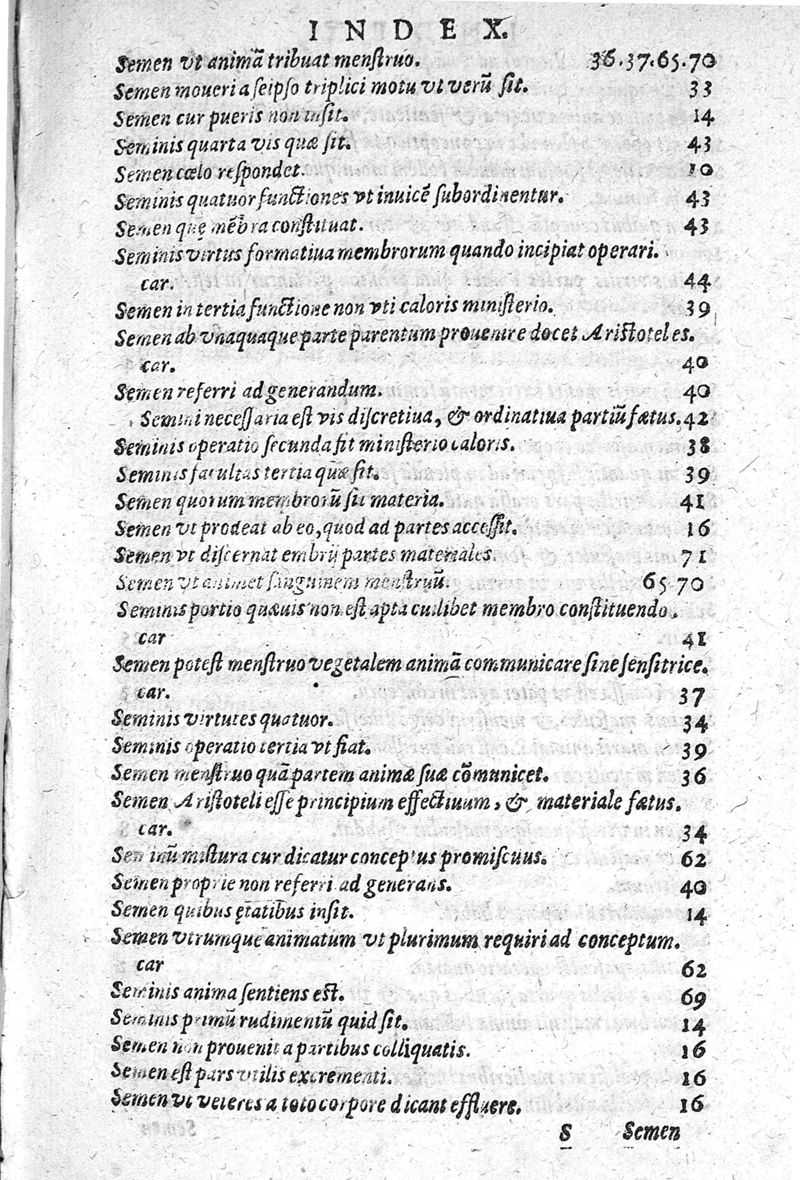 INDEX.
Semen vt animā tribuat menſtruo. 36.37.65.70
Semen moueri a ſeipſo triplici motu vt verū ſit. 33
Semen cur pueris non inſit. 14
Seminis quarta vis quæ ſit. 43
Semen cœlo reſpondet. 10
Seminis quatuor functiones vt inuicē ſubordinentur. 43
Semen quę mēbra conſtituat. 43
Seminis virtus formatiua membrorum quando incipiat operari.
car. 44
Semen in tertia functione non vti caloris miniſterio. 39
Semen ab vnaquaque parte parentum prouenire docet Ariſtoteles.
car. 40
Semen referri ad generandum. 40
Semini neceſſaria eſt vis diſcretiua, & ordinatiua partiū fætus. 42
Seminis operatio ſecunda fit miniſterio caloris. 38
Seminis facultas tertia quæ ſit. 39
Semen quorum membrorū ſit materia. 41
Semen vt prodeat ab eo, quod ad partes acceſſit. 16
Semen vt diſcernat embrij partes materiales. 71
Semen vt animet ſanguinem menſtruū. 65.70
Seminis portio quæuis non eſt apta cuilibet membro conſtituendo.
car 41
Semen poteſt menſtruo vegetalem animā communicare ſine ſenſitrice.
car. 37
Seminis virtutes quatuor. 34
Seminis operatio tertia vt fiat. 39
Semen menſtruo quā partem animæ ſuæ cōmunicet. 36
Semen Ariſtoteli eſſe principium effectiuum, & materiale fætus.
car. 34
Seminū miſtura cur dicatur conceptus promiſcuus. 62
Semen proprie non referri ad generans. 40
Semen quibus ętatibus inſit. 14
Semen vtrumque animatum vt plurimum requiri ad conceptum.
car 62
Seminis anima ſentiens eſt. 69
Seminis primū rudimentū quid ſit. 14
Semen non prouenit a partibus colliquatis. 16
Semen eſt pars vtilis excrementi. 16
Semen vt veteres a toto corpore dicant effluere. 16
S Semen